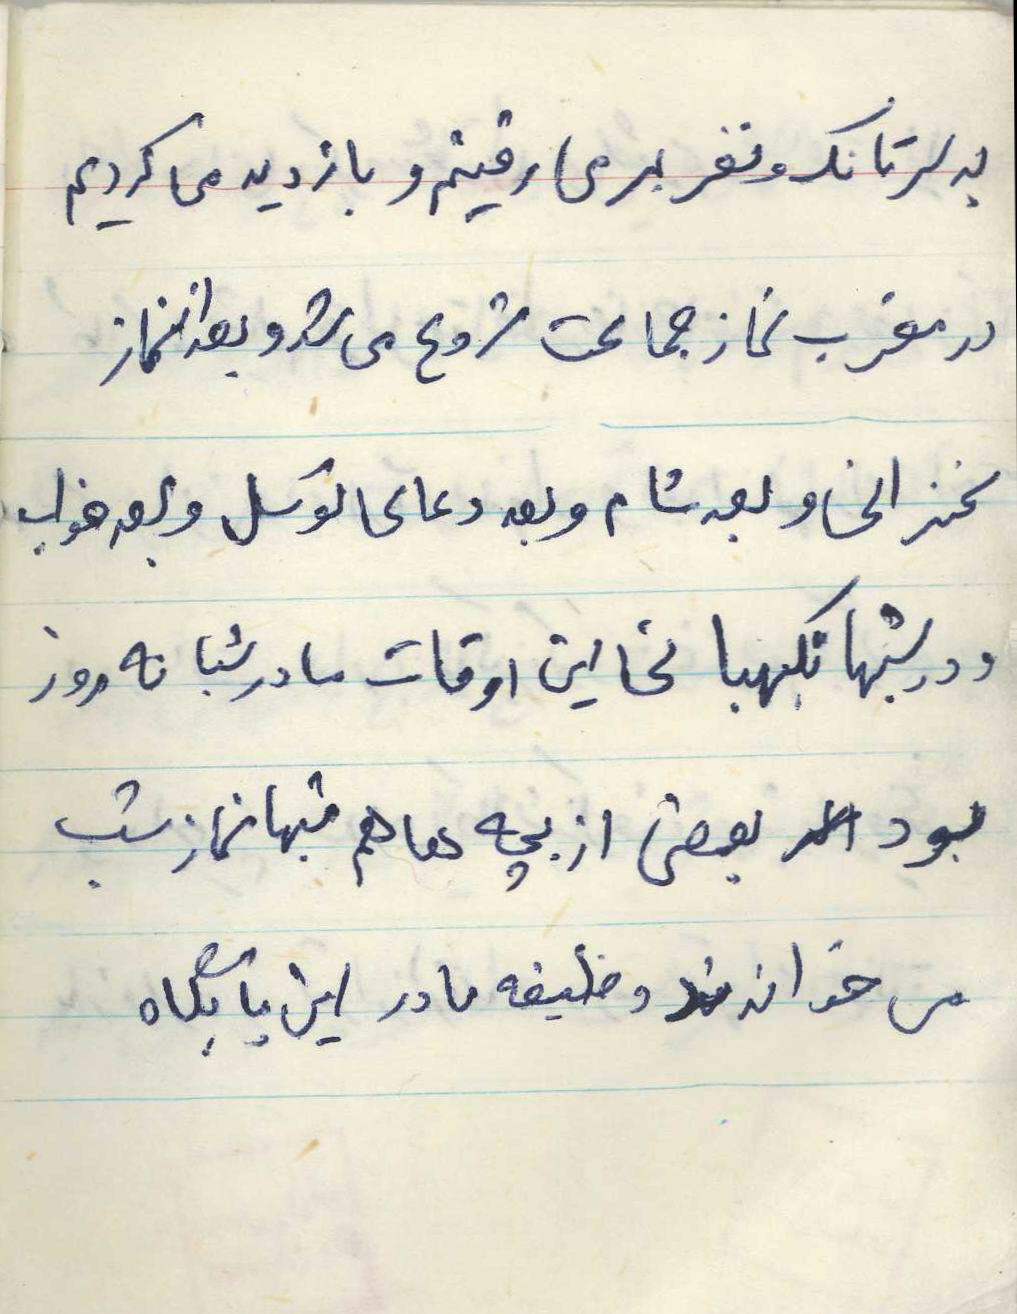 به سر تانک و نفربر می رفیتم و بازدید می کردیم
در مغرب نماز جماعت شروع می شد و بعد از نماز
سخنرانی و بعد شام و بعد دعای توسل و بعد خواب
و در شبها نگهبانی این اوقات ما در شبانه روز
بود بعضی از بچه ها هم شبها نماز شب
می خواندند وظیفه ما در این پایگاه